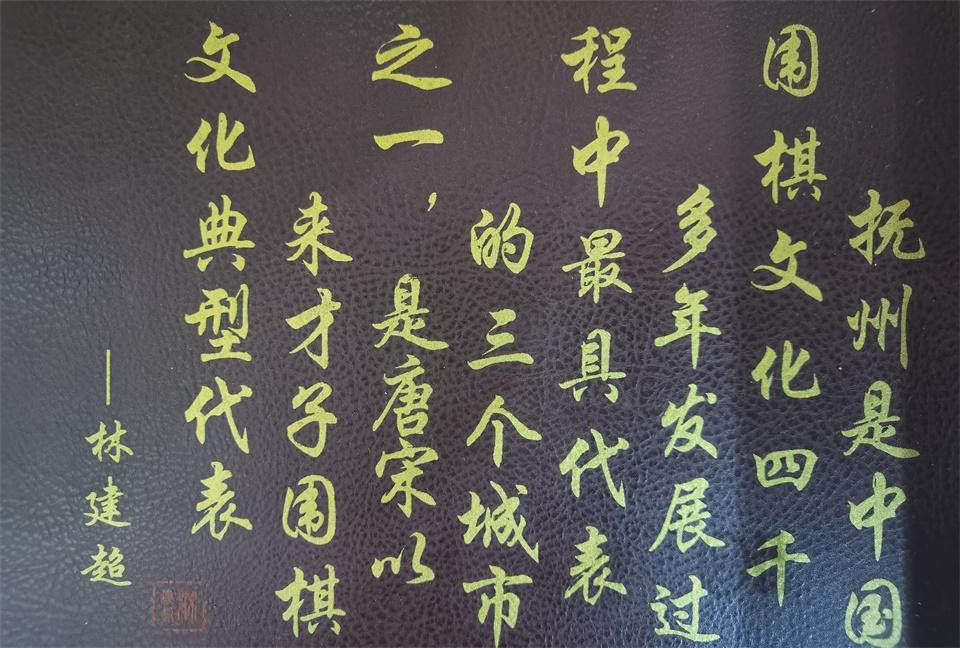 抚州是中国
围棋文化四千
多年发展过
程中最具代表
的三个城市
之一，是唐宋以
来才子围棋
文化典型代表
—林建超